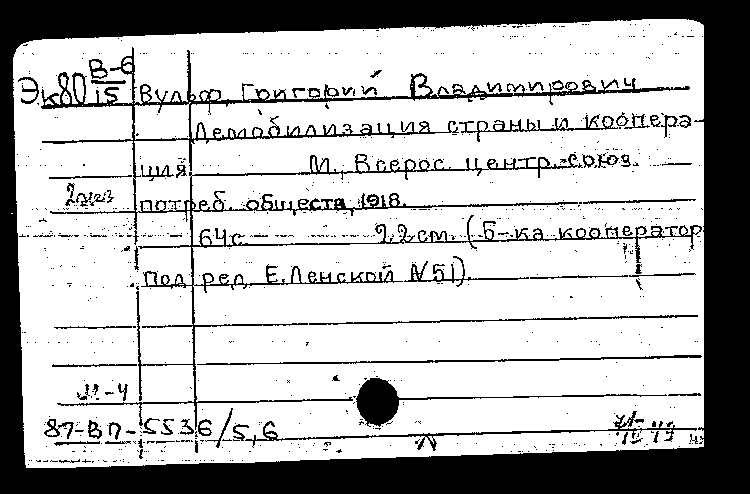 В-6
Эк80 15 Вульф, Григорий Владимирович
Демобилизация страны и коопера-
ция М., Всерос. центр. союз.
2экз потреб. обществ, 1918.
64с. 22см. (Б-ка кооператор
под ред. Е. Ленской №51).
М-4
87-ВП-5536/5,6